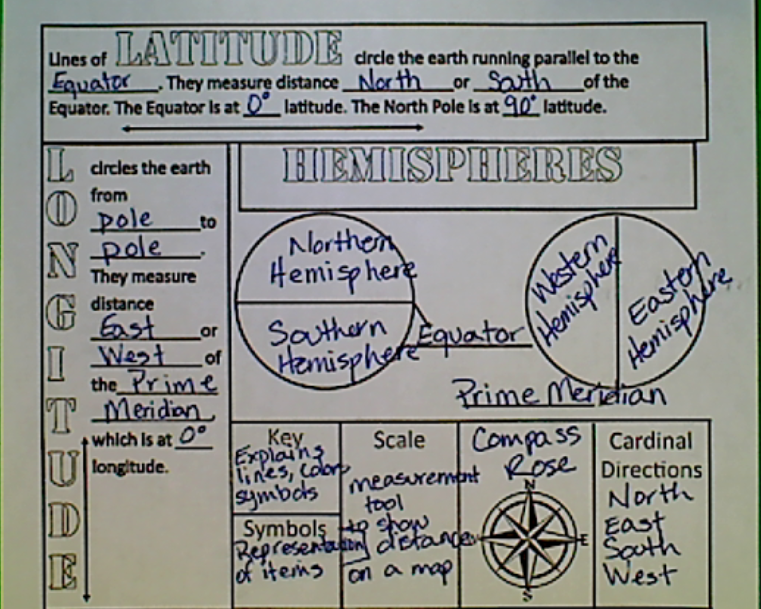 Lines of LATITUDE circle the earth running parallel to the
Equator. They measure distance North or South of the
Equator. The Equator is at 0° latitude. The North Pole is at 90° latitude.
LONGITUDE
circles the earth
from
pole to
pole.
They measure
distance
East or
West of
the Prime
Meridian,
which is at 0°
longitude.
HEMISPHERES
Northern
Hemisphere
Southern
Hemisphere
Equator
Western
Hemisphere
Eastern
Hemisphere
Prime Meridian
Key
Explains
lines, colors
symbols
Symbols
Representation
of items
Scale
measurement
tool
to show
distance
on a map
Compass
Rose
N
E
S
Cardinal
Directions
North
East
South
West